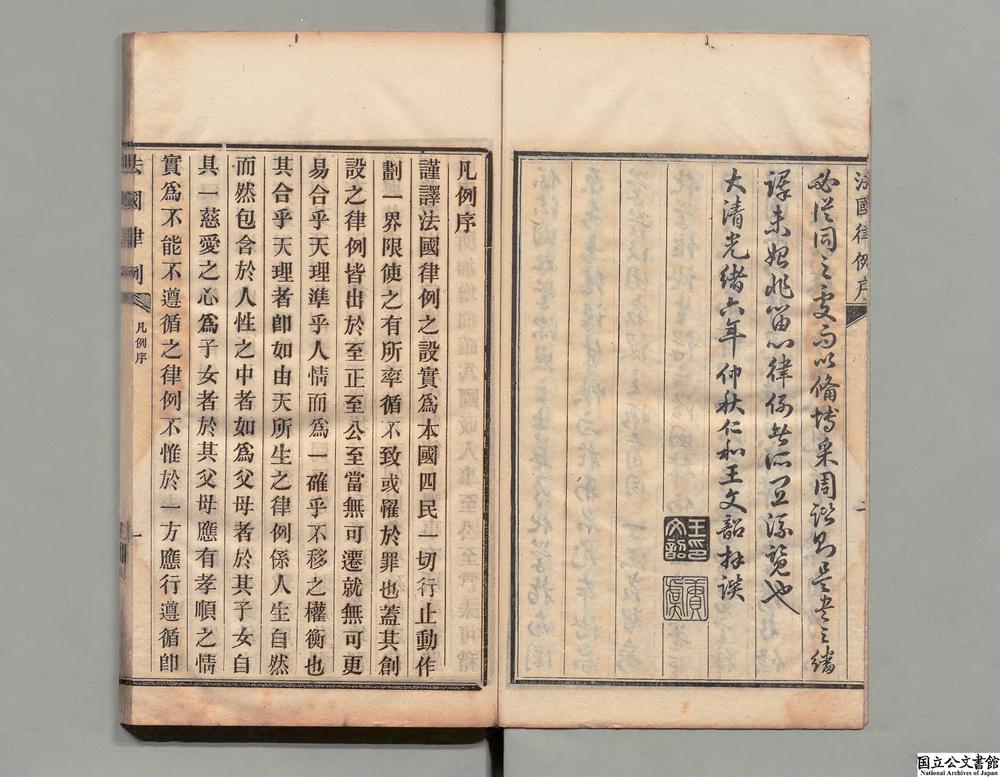 法國律例序
二
必從同之處而以備博采周諮則是書之繙
譯未始非留心律例者所宜流覽也
大清光緒六年仲秋仁和王文韶拜譔
王印文韶
賡虞
凡例序
謹譯法國律例之設實爲本國四民一切行止動作
劃一界限使之有所率循不致或罹於罪也蓋其創
設之律例皆出於至正至公至當無可遷就無可更
易合乎天理準乎人情而爲一確乎不移之權衡也
其合乎天理者卽如由天所生之律例係人生自然
而然包含於人性之中者如爲父母者於其子女自
具一慈愛之心爲子女者於其父母應有孝順之情
實爲不能不遵循之律例不惟於一方應行遵循卽
法國律例
凡例序
一
国立公文書館
National Archives of Japan